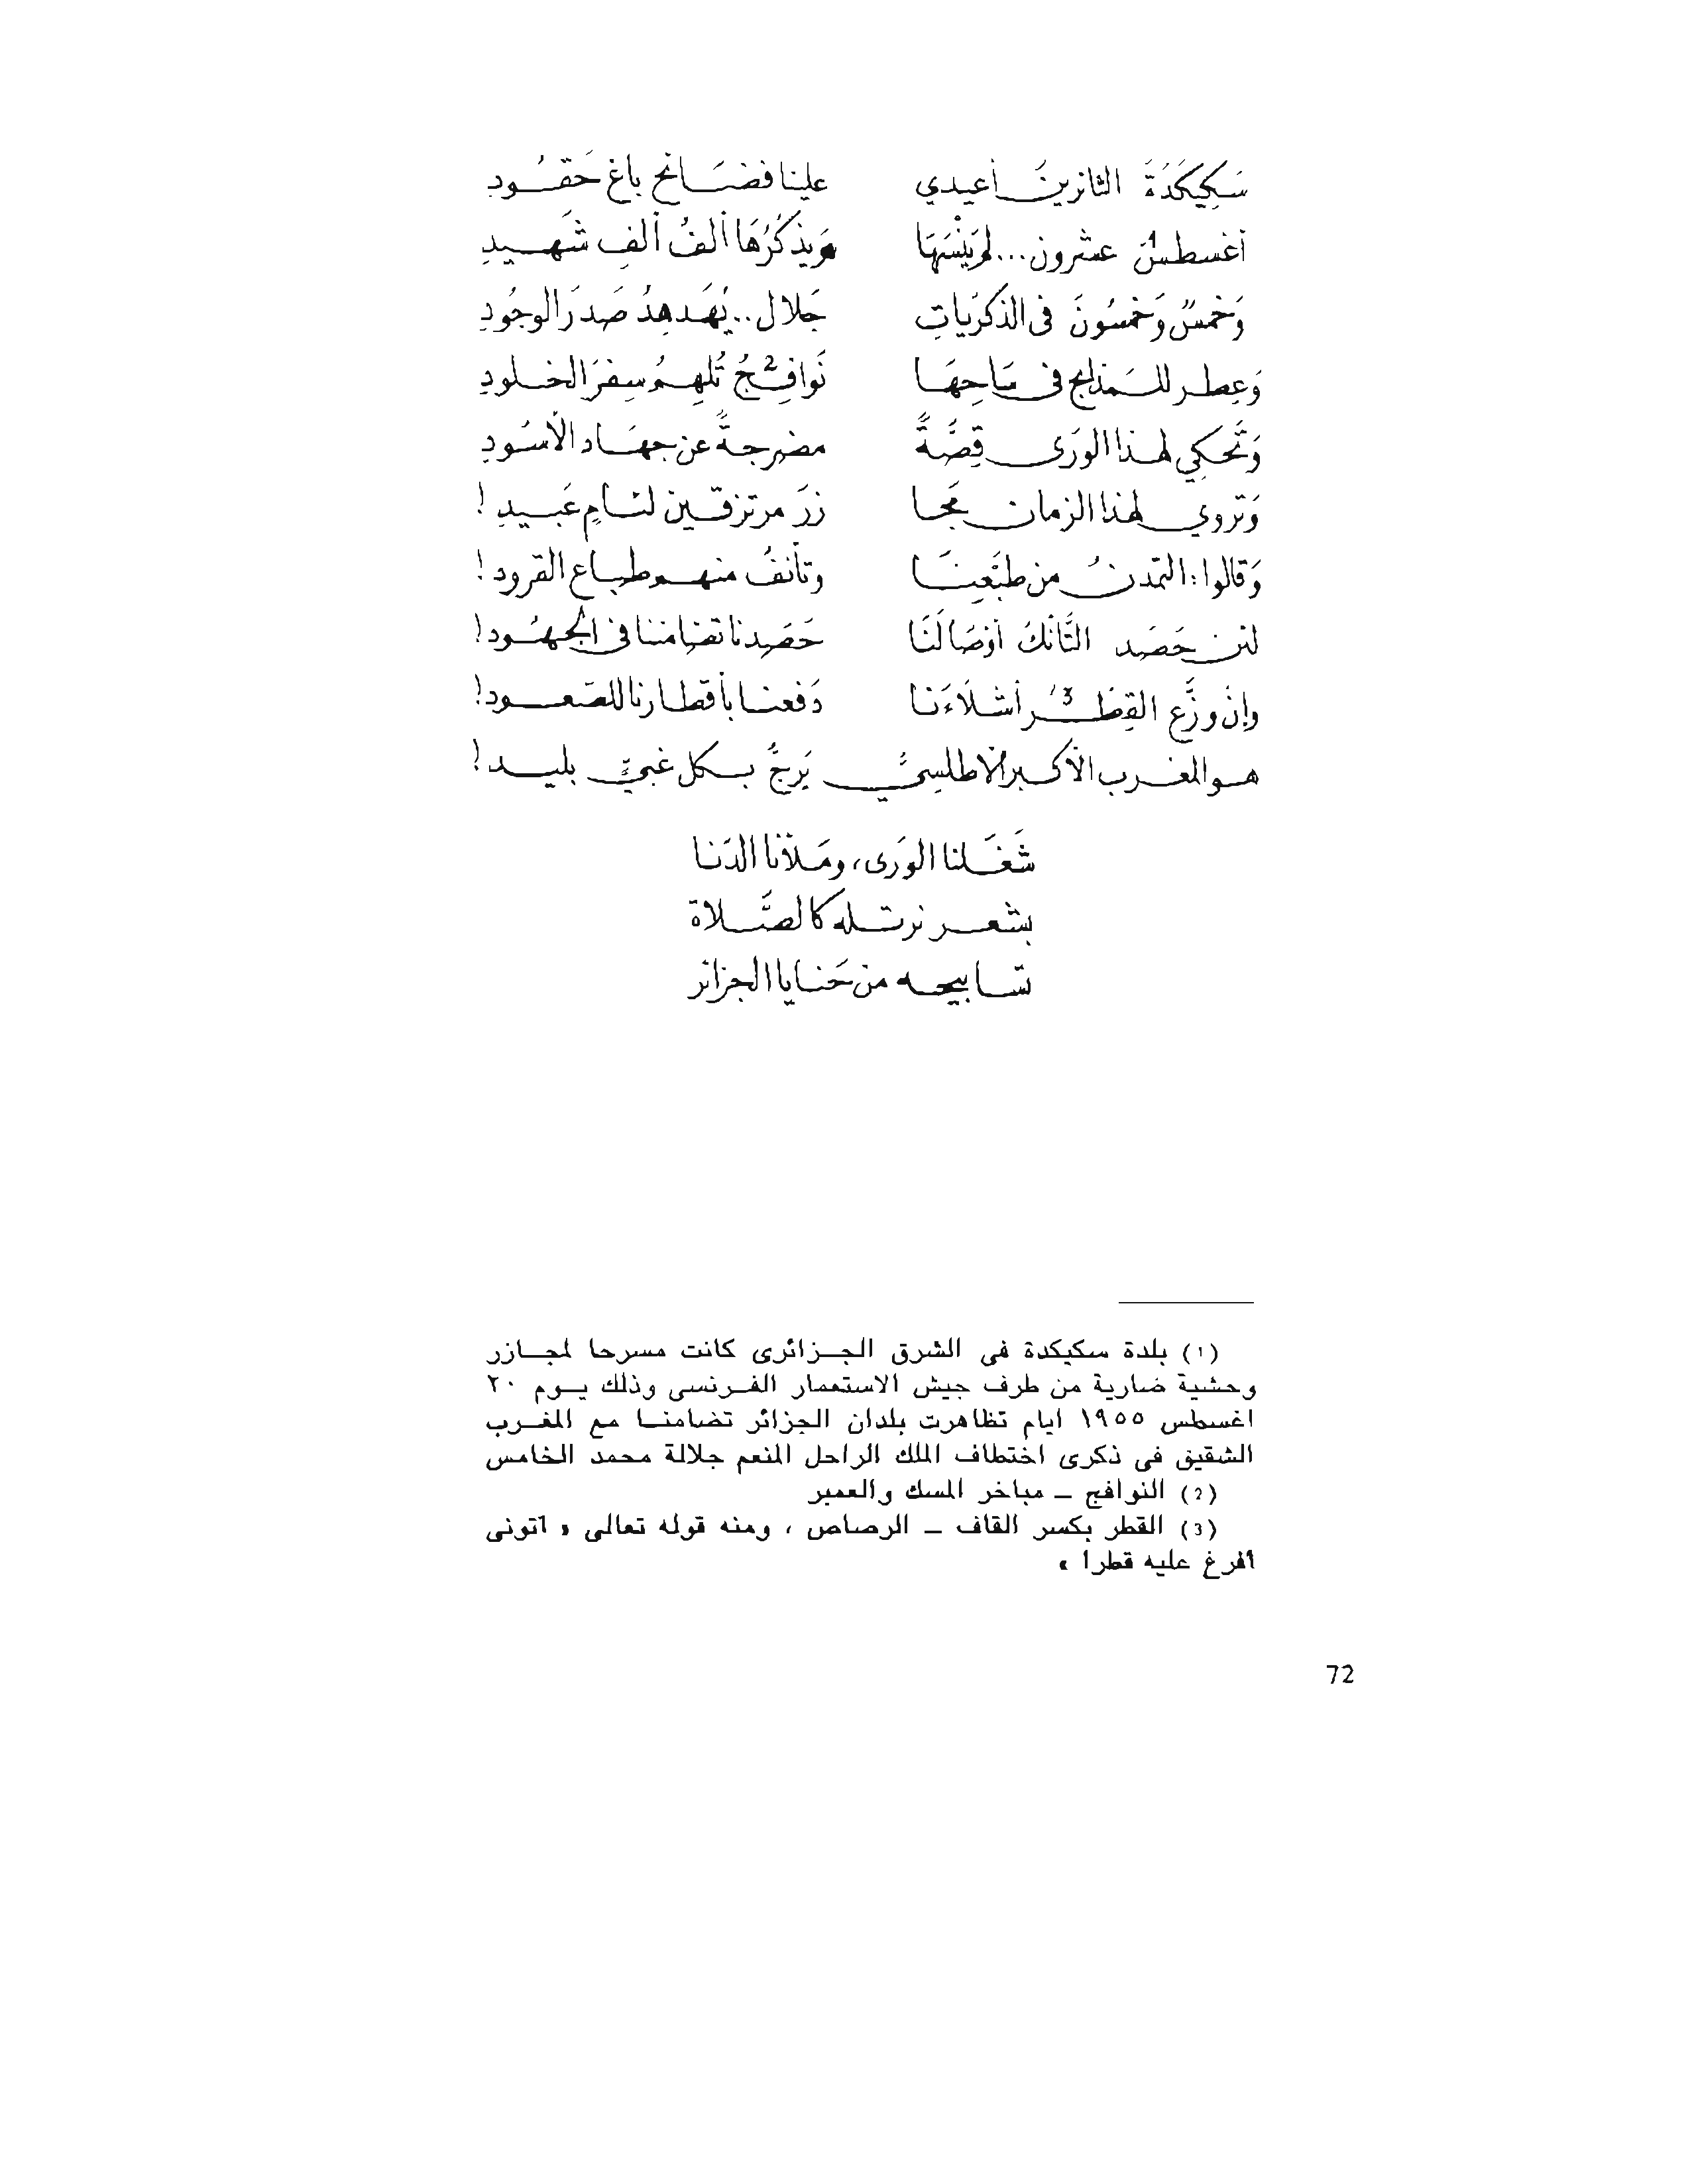 سَكِيكَدَةَ الثائرينَ أعيدي علينا فضَائح باغ حَقُودِ
أغسطسُ1 عشرون... لم يَنْسَهَا وَيذكُرُهَا ألفُ ألفِ شَهيدِ
وَخمسٌ وَخمسُونَ في الذكرَياتِ جَلال.. يُهَدهِدُ صَدرَ الوجُودِ
وَعِطر للمَذابح في سَاحِهَا نَوافِجُ2 تُلهِمُ سِفرَ الخلودِ
وَتَحكِي لهذا الوَرَى قِصَّةً مضرجةً عن جهَاد الأسُودِ
وَتروي لهذا الزمان مجَا زرَ مرتزقين لئامٍ عَبيدِ!
وَقالوا: التمّدنُ من طبَعِينَا وتأنفُ منهم طباع القرود!
لئن حَصَد التَّانكُ أوْصَالَنَا حَصَدنا تضامننا في الجهُود!
وإنْ وزَّع القِطْرُ3 أشلَاءَنا دَفعنا بأقطارنا للصّعود!
هو المغرب الأكبر الأطلسيُّ يَرجُّ بكل غبيٍّ بليد!
شَغَلنا الوَرَى، ومَلأنا الدّنا
بشعر نرتله كالصَّلاة
تسابيحه من حَنايا الجزائر
(١) بلدة سكيكدة فى الشرق الجزائرى كانت مسرحا لمجازر
وحشية ضارية من طرف جيش الاستعمار الفرنسى وذلك يوم ٢٠
اغسطس ١٩٥٥ ايام تظاهرت بلدان الجزائر تضامنا مع المغرب
الشقيق فى ذكرى اختطاف الملك الراحل المنعم جلالة محمد الخامس
(2) النوافج — مباخر المسك والعمبر
(3) القطر بكسر القاف — الرصاص ، ومنه قوله تعالى « آتونى
أفرغ عليه قطرا »
72